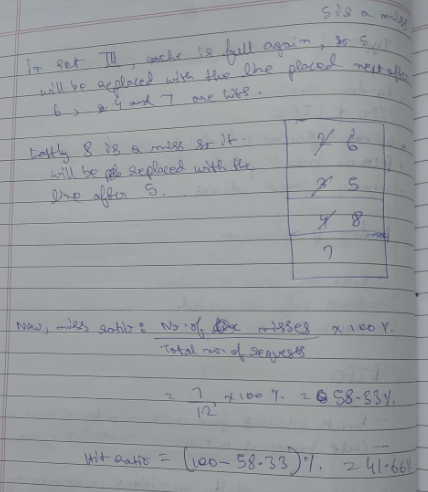 5 is a miss
In set III, cache is full again, so 5
will be replaced with the line placed next after
6, 4 and 7 are hits.
Lastly 8 is a miss so it
will be replaced with the
line after 5.
2 6
3 5
4 8
7
Now, miss ratio: No. of misses × 100%.
Total no. of requests
= 7/12 × 100%. = 58.33%.
Hit ratio = (100 - 58.33)%. = 41.66%